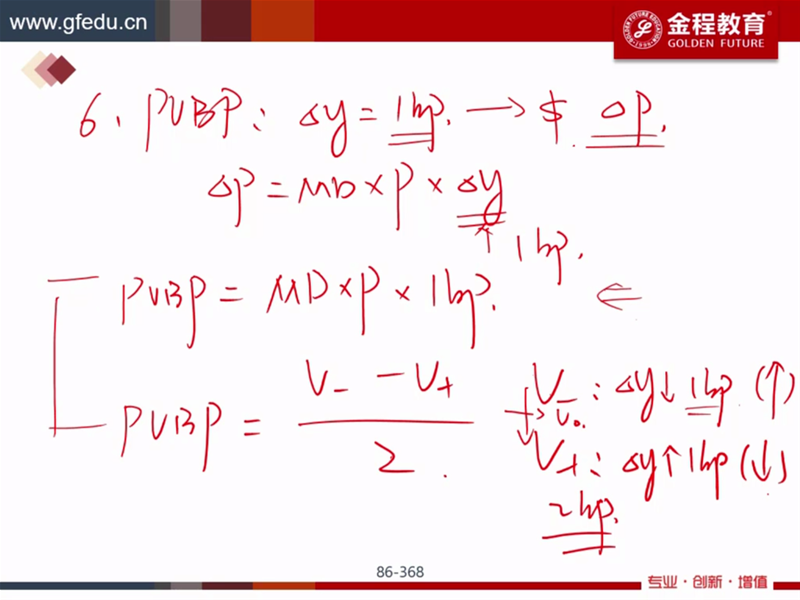 www.gfedu.cn
金程教育
GOLDEN FUTURE
6、PVBP: Δy = 1bp. → $ ΔP.
ΔP = MD × P × Δy
↑ 1bp.
PVBP = MD × P × 1bp. ⇐
PVBP = (V₋ − V₊) / 2
V₋: Δy↓ 1bp (↑)
V₀.
V₊: Δy↑ 1bp (↓)
2bp.
86-368
专业·创新·增值